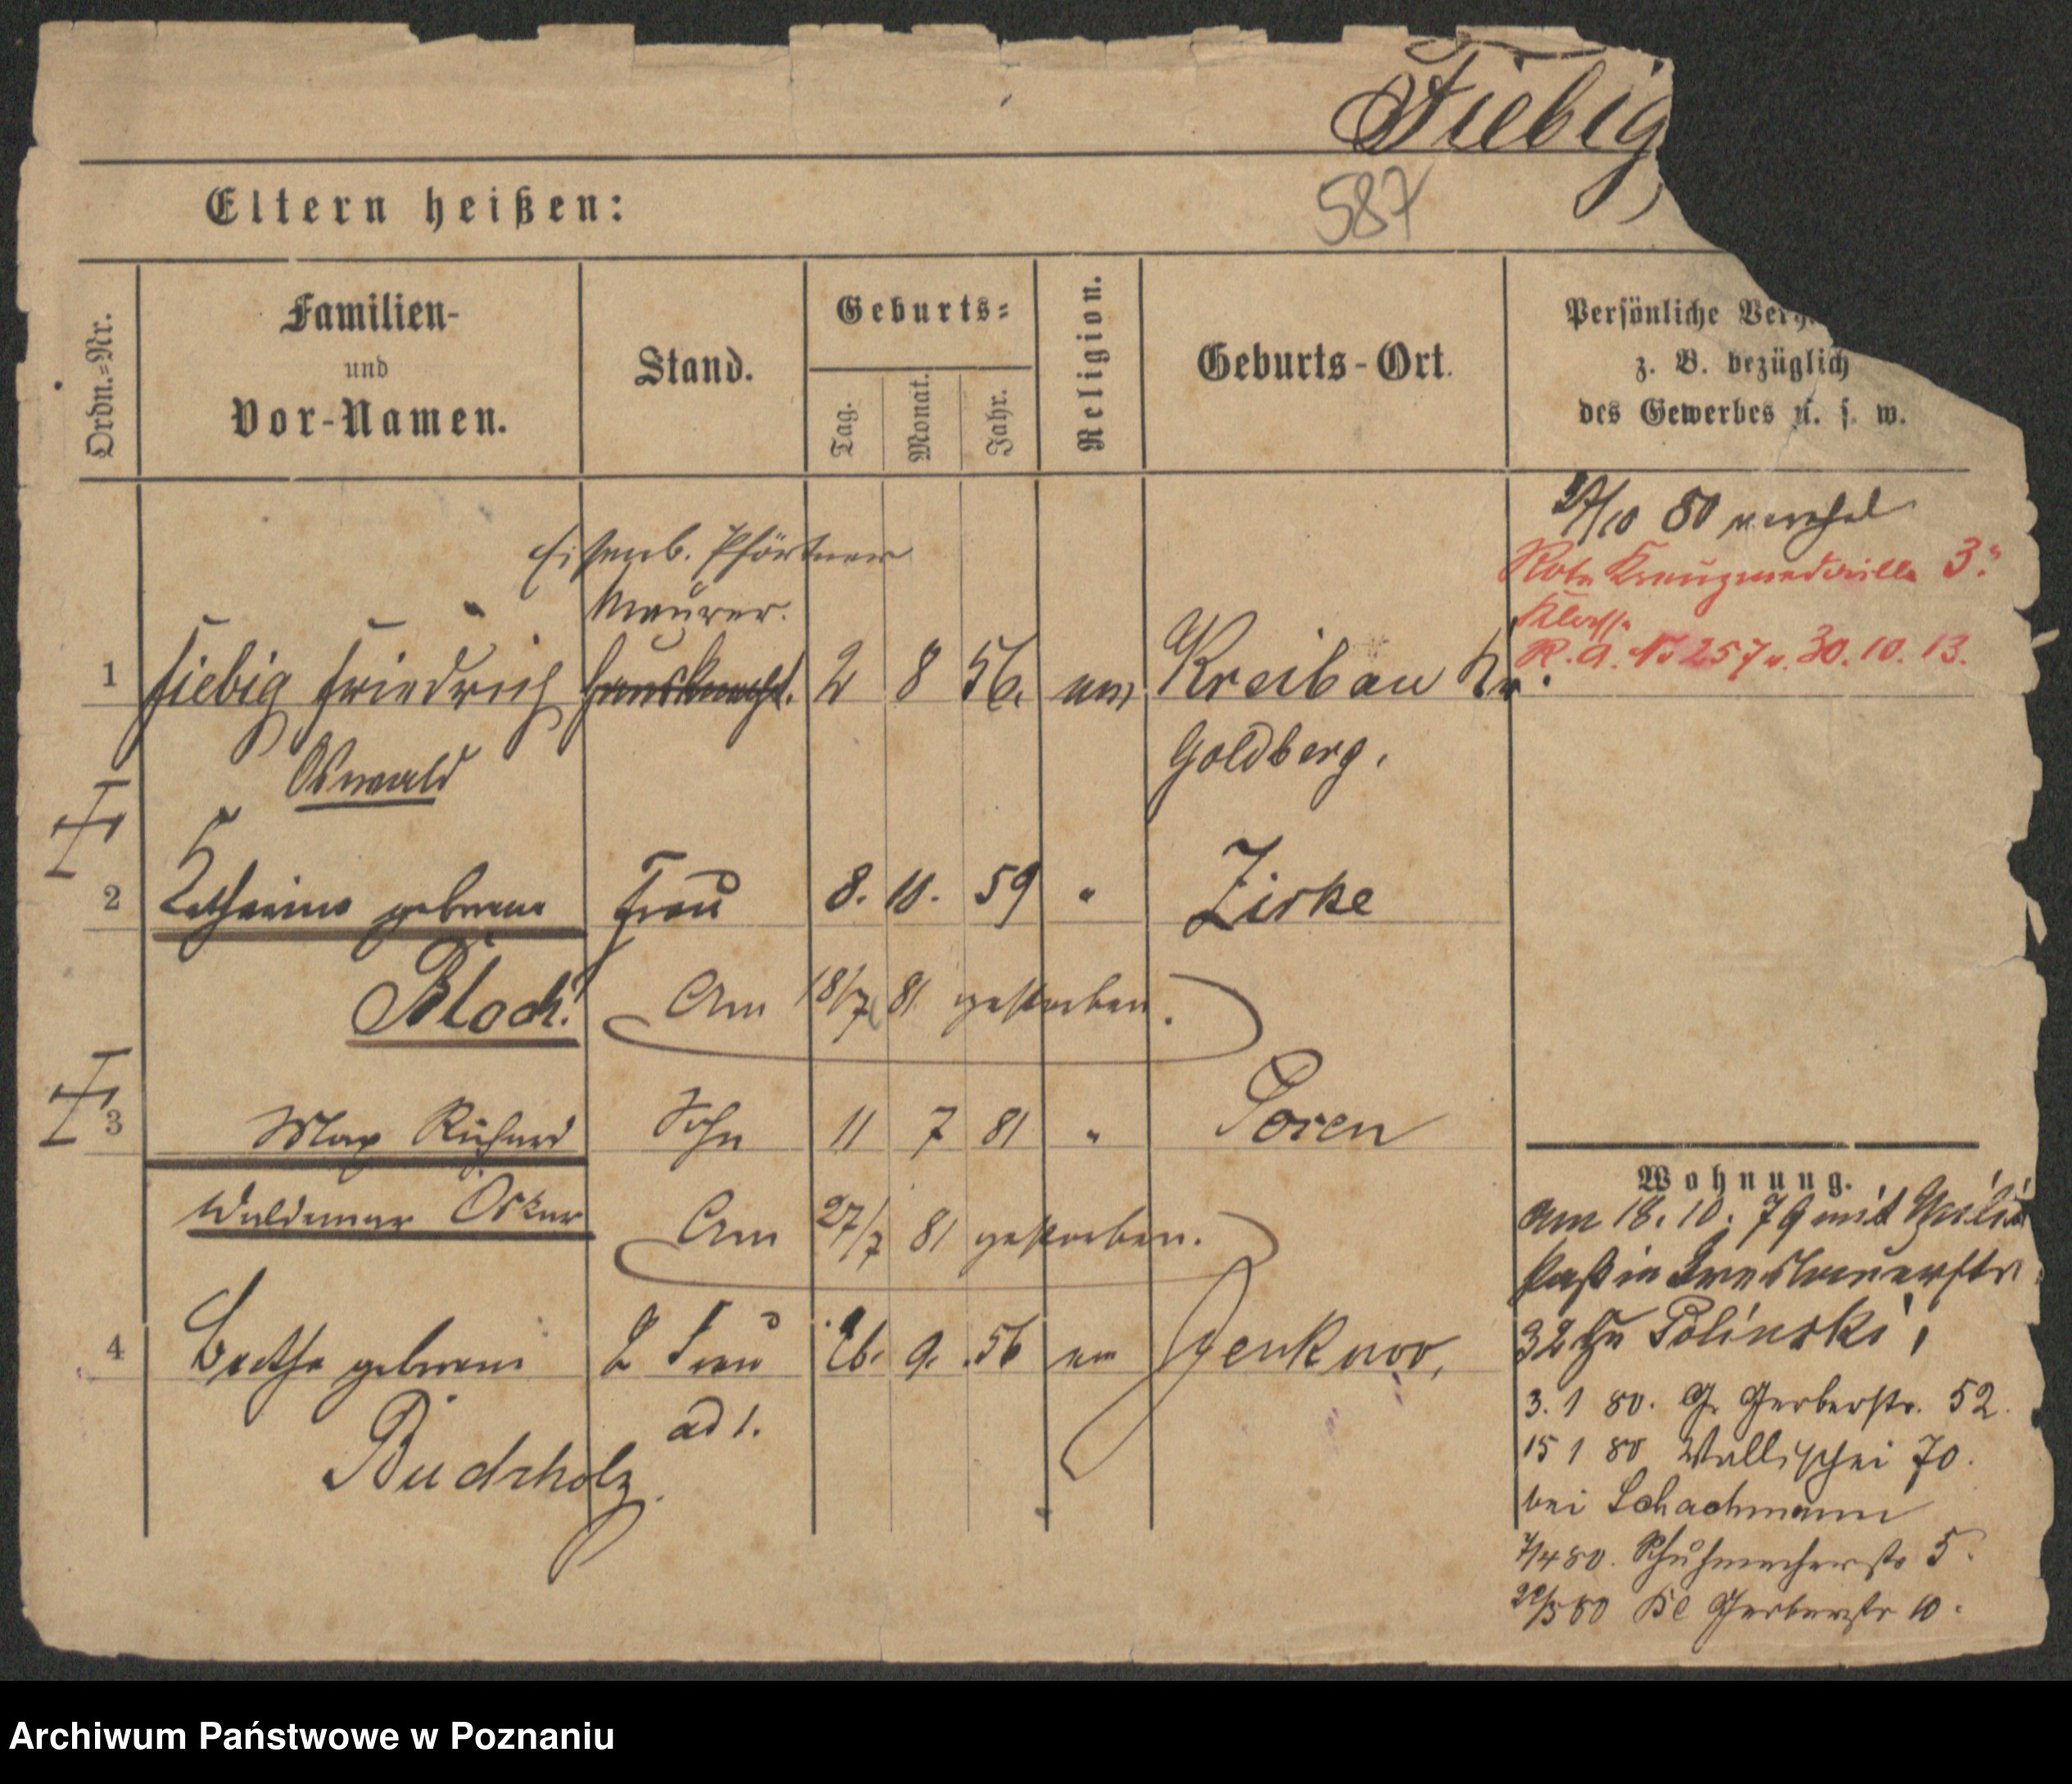 Fiebig
587
Eltern heißen:
Ordn.=Nr.
Familien-
und
Vor-Namen.
Stand.
Geburts=
Tag.
Monat.
Jahr.
Religion.
Geburts-Ort.
Persönliche Verh
z. B. bezüglich
des Gewerbes u. s. w.
/10 80 verehel
Rote Kreuzmedaille 3.
Klasse
R. A. No 257 v. 30. 10. 13.
Eisenb. Pförtner
Maurer.
1 Fiebig Friedrich Hausknecht. 2 8 56. ev Kreibau Kr.
Oswald Goldberg.
2 Katharina geborene Frau 8. 11. 59 " Zirke
Bloch. Am 18/7 81 gestorben.
3 Max Richard Sohn 11 7 81 " Posen
Waldemar Oskar Am 27/7 81 gestorben.
4 Bertha geborene 2 Frau 26. 9. 56 ev Jenkwo.
Buchholz ad 1.
Wohnung.
am 18. 10. 79 mit
paß in Breslauerstr
32 Polinski,
3. 1 80. Gr Gerberstr. 52.
15 1 80 Wallischei 70.
bei Schachmann
7/4 80. Schuhmacherstr 5.
/5 80 Kl Gerberstr 10.
Archiwum Państwowe w Poznaniu